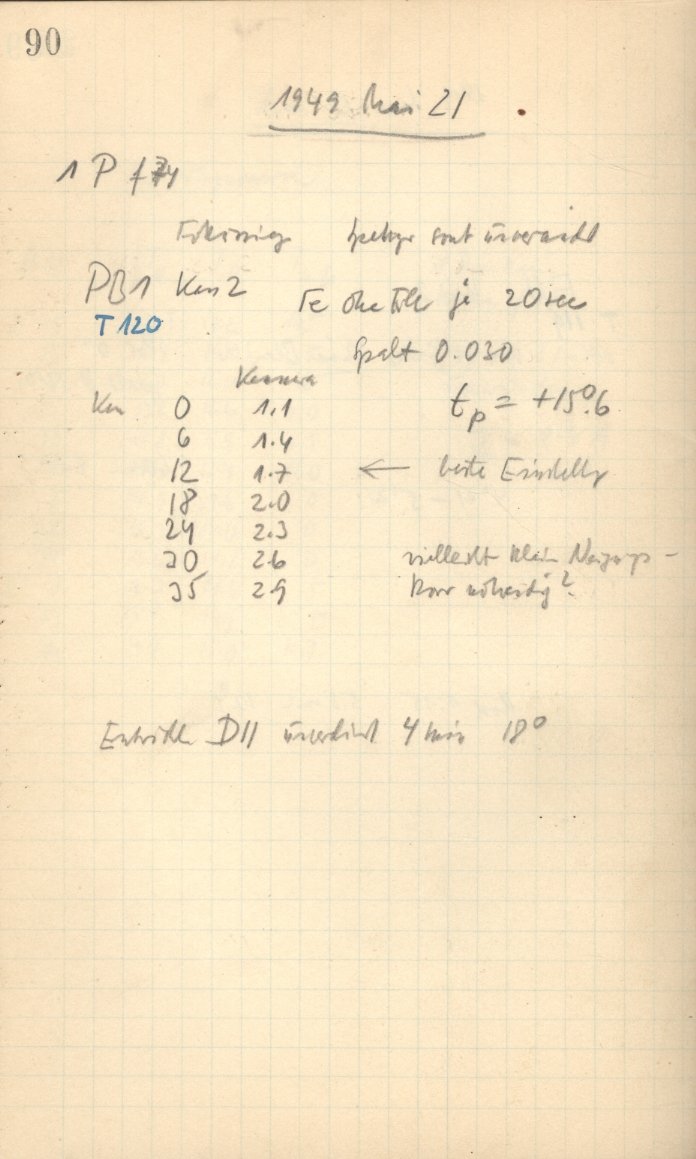 90
1949 Mai 21
1 P f 74
Fokussierg Spektrgr sonst unverändert
PB1 Kas 2 Fe ohne Filt je 20 sec
T 120
Spalt 0.030
Kamera
Kas 0 1.1 tp = +15°.6
6 1.4
12 1.7 ← beste Einstellg
18 2.0
24 2.3
30 2.6 vielleicht klein Neigungs-
35 2.9 korr notwendig?
Entwickl D11 unverdünnt 4 min 18°